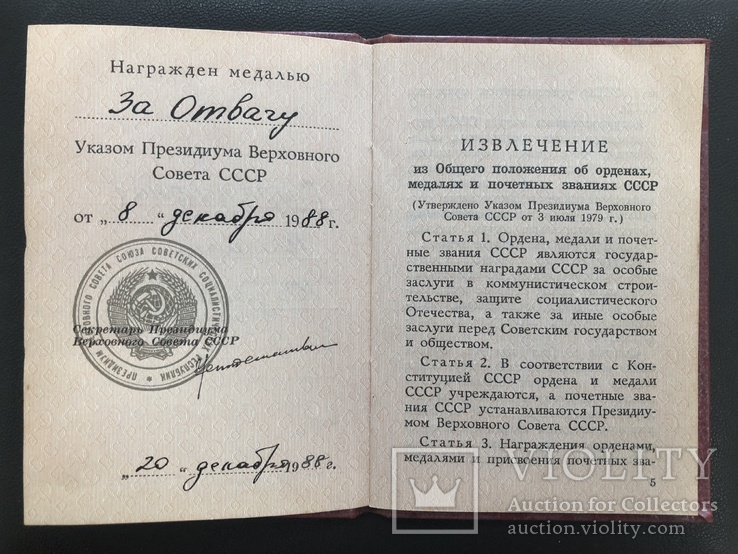 Награжден медалью
За Отвагу
Указом Президиума Верховного
Совета СССР
от „8“ декабря 1988 г.
ПРЕЗИДИУМ ВЕРХОВНОГО СОВЕТА СОЮЗА СОВЕТСКИХ СОЦИАЛИСТИЧЕСКИХ РЕСПУБЛИК
Секретарь Президиума
Верховного Совета СССР
„20“ декабря 1988 г.
ИЗВЛЕЧЕНИЕ
из Общего положения об орденах,
медалях и почетных званиях СССР
(Утверждено Указом Президиума Верховного
Совета СССР от 3 июля 1979 г.)
Статья 1. Ордена, медали и почет-
ные звания СССР являются государ-
ственными наградами СССР за особые
заслуги в коммунистическом строи-
тельстве, защите социалистического
Отечества, а также за иные особые
заслуги перед Советским государством
и обществом.
Статья 2. В соответствии с Кон-
ституцией СССР ордена и медали
СССР учреждаются, а почетные зва-
ния СССР устанавливаются Президиу-
мом Верховного Совета СССР.
Статья 3. Награждения орденами,
медалями и присвоения почетных зва-
5
VIOLITY
Auction for Collectors
auction.violity.com